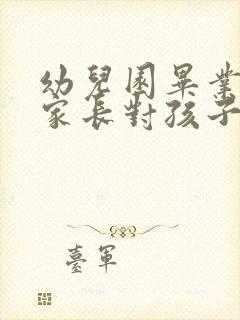 幼兒園畢業
家長對孩子
臺軍